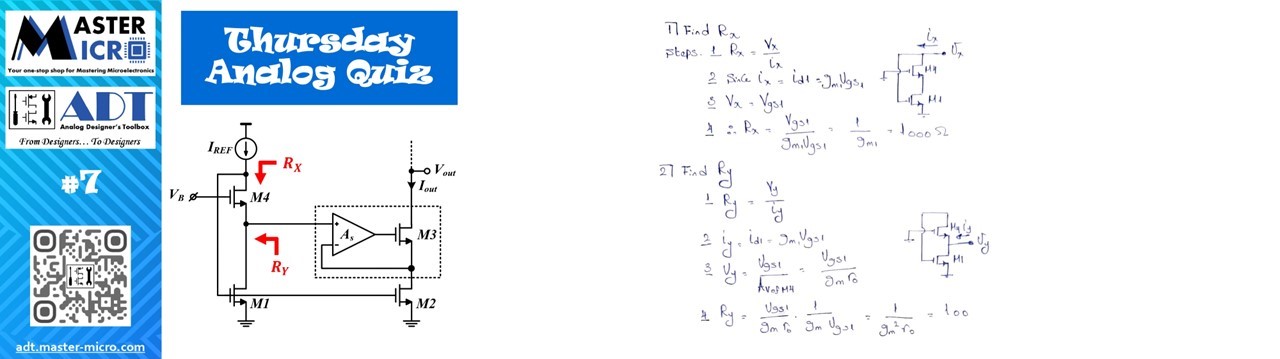 MASTER
MICRO
Your one-stop shop for Mastering Microelectronics
ADT
Analog Designer's Toolbox
From Designers… To Designers
#7
adt.master-micro.com
Thursday
Analog Quiz
I_REF
R_X
V_B
M4
V_out
I_out
A_s
+
-
M3
R_Y
M1
M2
1) Find Rx
steps. 1 Rx = Vx/ix
2 Since ix = id1 = gm1Vgs1
3 Vx = Vgs1
4 ∴ Rx = Vgs1/gm1Vgs1 = 1/gm1 = 1000Ω
ix
Vx
M4
M1
2) Find Ry
1 Ry = Vy/iy
2 iy = id1 = gm1Vgs1
3 Vy = Vgs1/Av of M4 = Vgs1/gm ro
4 Ry = Vgs1/gm ro · 1/gm Vgs1 = 1/gm²ro = 100
M4
iy
Vy
M1